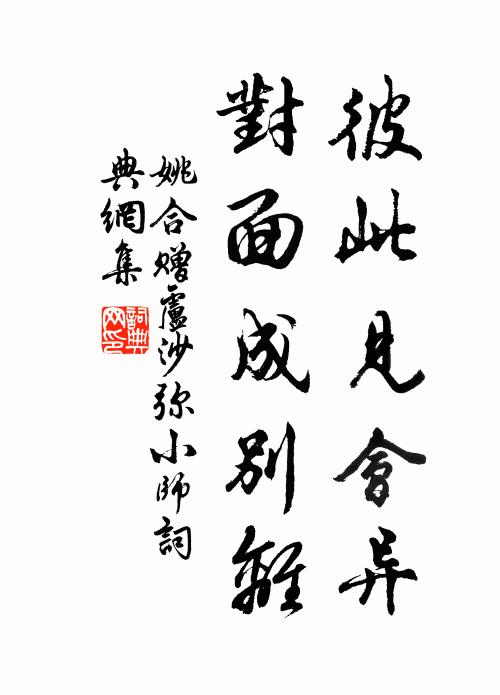 彼此見會异
對面成別離
姚合赠盧沙弥小師詞
典網集
詞典网印